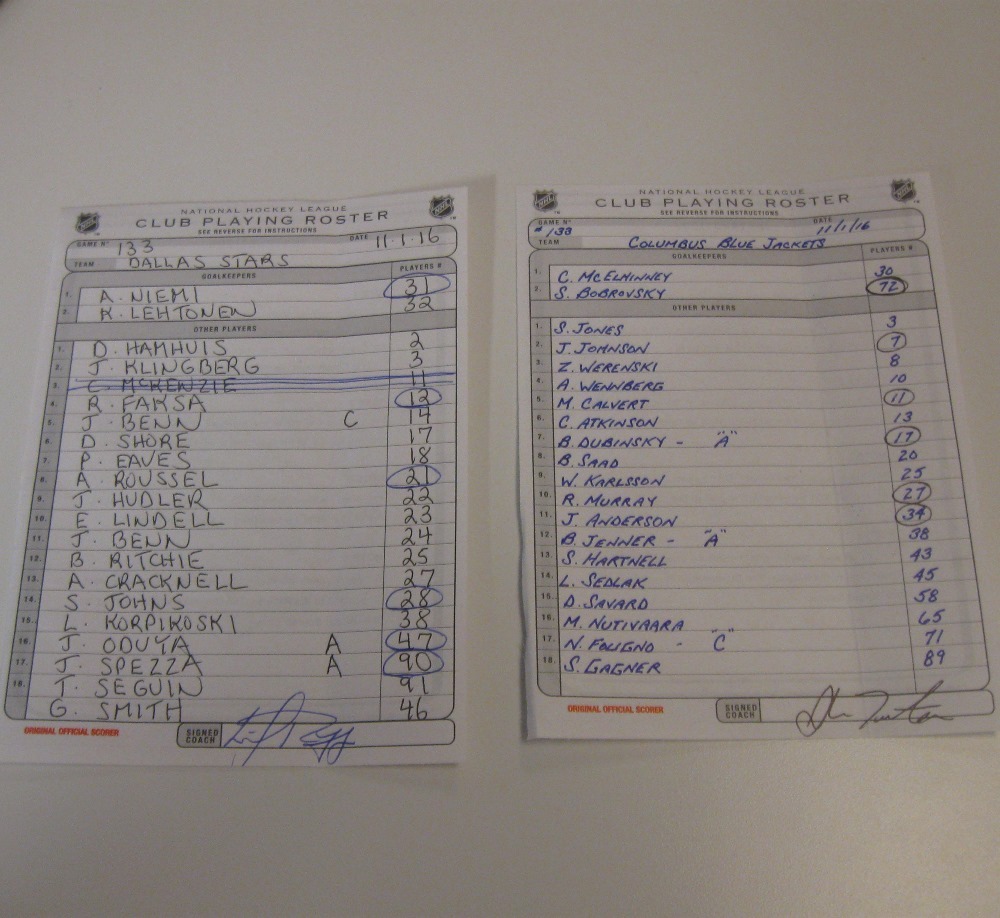 NATIONAL HOCKEY LEAGUE
CLUB PLAYING ROSTER
SEE REVERSE FOR INSTRUCTIONS
GAME Nº 133 DATE 11·1·16
TEAM DALLAS STARS
GOALKEEPERS PLAYERS #
1. A. NIEMI 31
2. K. LEHTONEN 32
OTHER PLAYERS
1. D. HAMHUIS 2
2. J. KLINGBERG 3
3. C. McKENZIE 11
4. R. FAKSA 12
5. J. BENN C 14
6. D. SHORE 17
7. P. EAVES 18
8. A. ROUSSEL 21
9. J. HUDLER 22
10. E. LINDELL 23
11. J. BENN 24
12. B. RITCHIE 25
13. A. CRACKNELL 27
14. S. JOHNS 28
15. L. KORPIKOSKI 38
16. J. ODUYA A 47
17. J. SPEZZA A 90
18. T. SEGUIN 91
G. SMITH 46
ORIGINAL OFFICIAL SCORER SIGNED COACH
NATIONAL HOCKEY LEAGUE
CLUB PLAYING ROSTER
SEE REVERSE FOR INSTRUCTIONS
GAME Nº # 133 DATE 11/1/16
TEAM COLUMBUS BLUE JACKETS
GOALKEEPERS PLAYERS #
1. C. McELHINNEY 30
2. S. BOBROVSKY 72
OTHER PLAYERS
1. S. JONES 3
2. J. JOHNSON 7
3. Z. WERENSKI 8
4. A. WENNBERG 10
5. M. CALVERT 11
6. C. ATKINSON 13
7. B. DUBINSKY - "A" 17
8. B. SAAD 20
9. W. KARLSSON 25
10. R. MURRAY 27
11. J. ANDERSON 34
12. B. JENNER - "A" 38
13. S. HARTNELL 43
14. L. SEDLAK 45
15. D. SAVARD 58
16. M. NUTIVAARA 65
17. N. FOLIGNO - "C" 71
18. S. GAGNER 89
ORIGINAL OFFICIAL SCORER SIGNED COACH